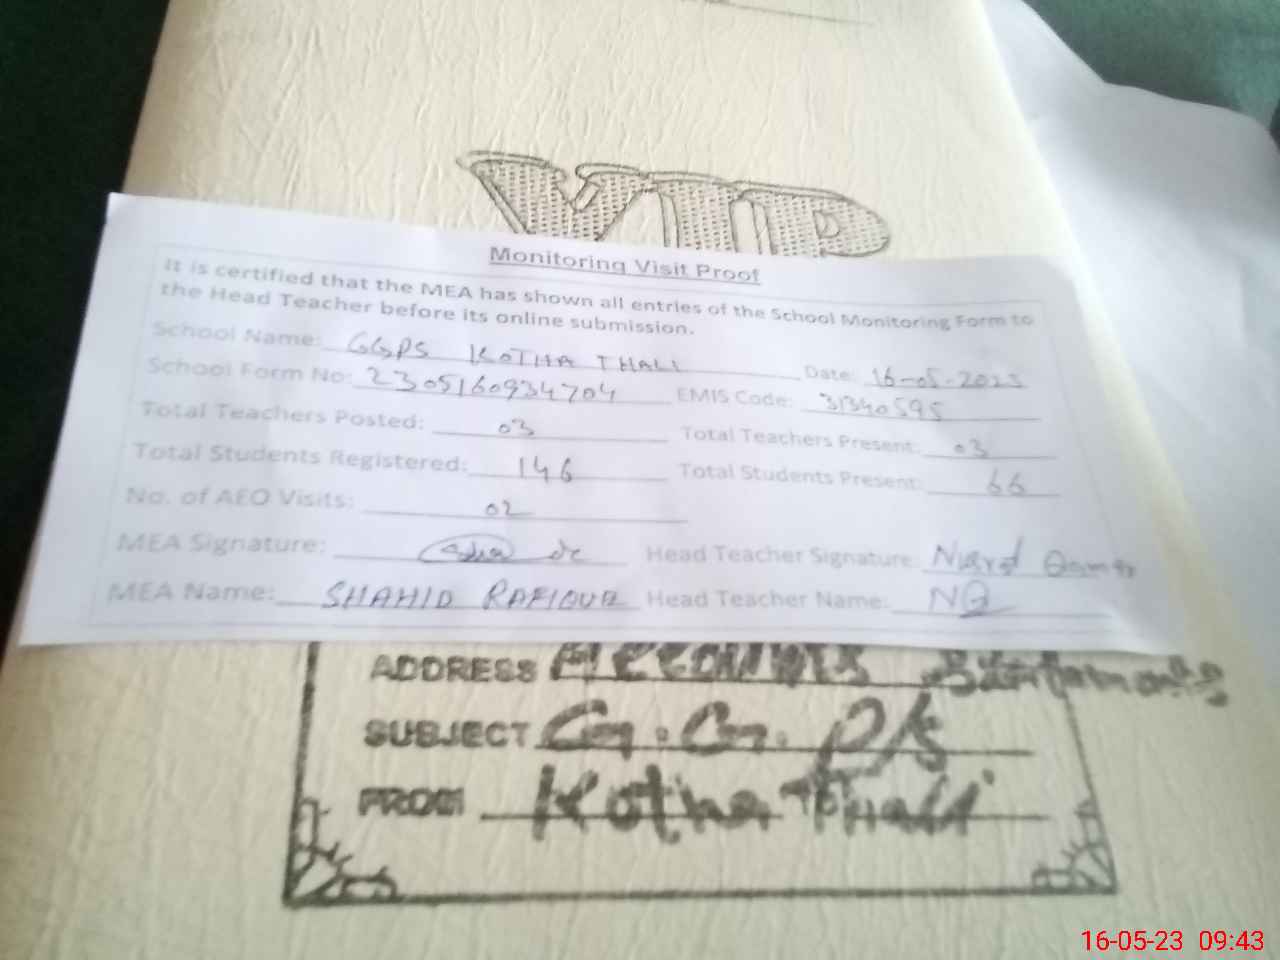 VIP
Monitoring Visit Proof
It is certified that the MEA has shown all entries of the School Monitoring Form to
the Head Teacher before its online submission.
School Name: GGPS KOTHA THALI Date: 16-05-2023
School Form No: 2305160934704 EMIS Code: 31340595
Total Teachers Posted: 03 Total Teachers Present: 03
Total Students Registered: 146 Total Students Present: 66
No. of AEO Visits: 02
MEA Signature: Head Teacher Signature: Qamar
MEA Name: SHAHID RAFIQUE Head Teacher Name: NQ
ADDRESS Accounts
SUBJECT G.G.P/S
FROM Kotha Thali
16-05-23 09:43